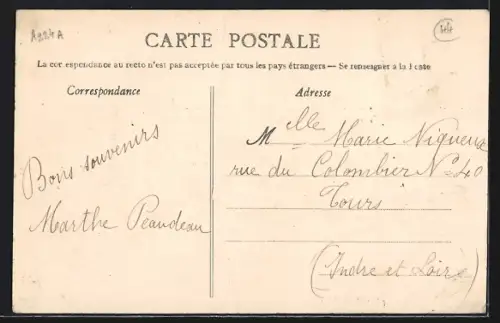 A224A
44
CARTE POSTALE
La correspondance au recto n'est pas acceptée par tous les pays étrangers — Se renseigner à la Poste
Correspondance
Adresse
Bons souvenirs
Marthe Peaudeau
Melle Marie Vigneux
rue du Colombier No 40
Tours
(Indre et Loire)